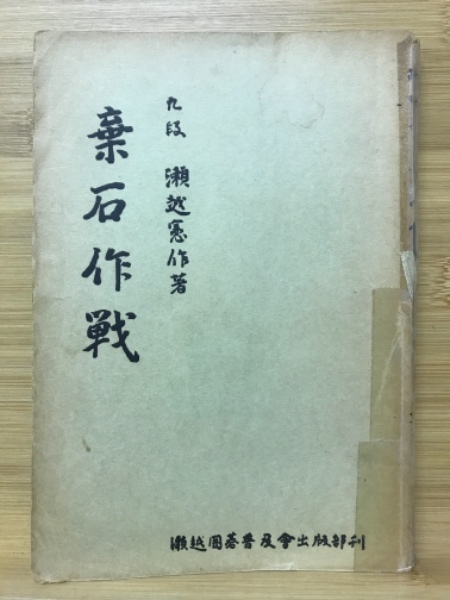 九段 瀬越憲作著
棄石作戦
瀬越囲碁普及會出版部刊